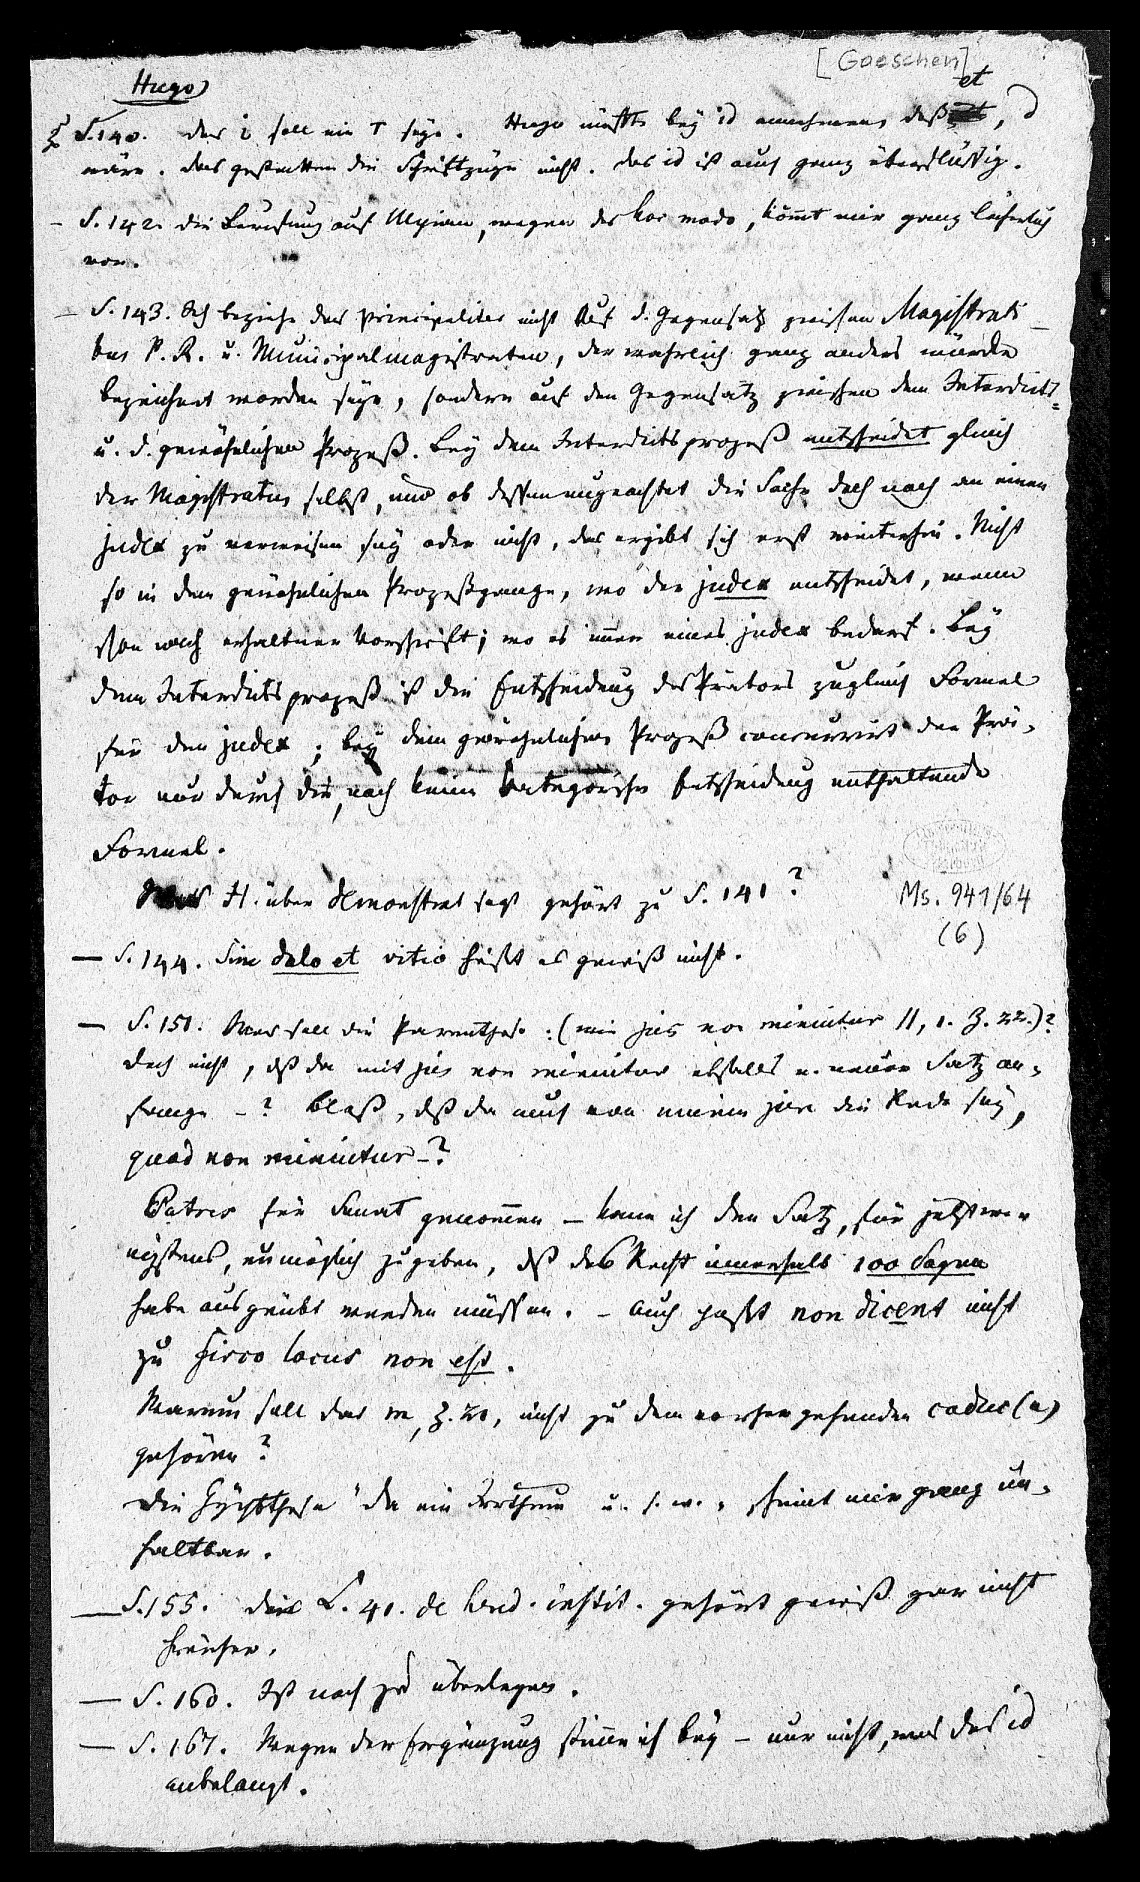 [Goeschen]
Hugo
S. 140. das i soll ein T seyn. Hugo müßte bey id annehmen, daß et, d
wäre. das gestatten die Schriftzüge nicht. das id ist auch ganz überflüssig.
- S. 142. die Berufung auf Ulpian, wegen des hoc modo, kömmt mir ganz lächerlich
vor.
- S. 143. Ich beziehe das principaliter nicht auf d. Gegensatz zwischen Magistrati-
bus P. R. u. Municipalmagistraten, der wahrlich ganz anders würde
bezeichnet worden seyn, sondern auf den Gegensatz zwischen dem Interdicts-
u. d. gewöhnlichen Prozeß. Bey dem Interdictsprozeß entscheidet gleich
der Magistratus selbst, und ob dessenungeachtet die Sache doch noch an einen
judex zu verweisen sey oder nicht, das ergibt sich erst weiterhin. Nicht
so in dem gewöhnlichen Prozeßgange, wo der judex entscheidet, wenn
schon nach erhaltner Vorschrift; wo es immer eines judex bedarf. Bey
dem Interdictsprozeß ist die Entscheidung des Prätors zugleich Formel
für den judex; bey dem gewöhnlichen Prozeß concurrirt der Prä-
tor nur durch die, noch keine kategorische Entscheidung enthaltende
Formel.
Was H. über demonstrat sagt gehört zu S. 141?
Ms. 941/64
(6)
- S. 144. Sine dolo et vitio heißt es gewiß nicht.
- S. 151. Was soll die Parenthese: (wie jus non minuitur II, 1. Z. 22.)?
doch nicht, daß da mit jus non minuitur ebenfalls e. neuer Satz an-
fange -? Bloß, daß da auch von einem jure die Rede sey,
quod non minuitur -?
Patres für Senat genommen - kann ich den Satz, für jetzt we-
nigstens, unmöglich zugeben, daß das Recht innerhalb 100 Tagen
habe ausgeübt werden müssen. - Auch paßt non dicent nicht
zu fisco locus non est.
Warum soll das m, Z. 20, nicht zu dem vorhergehenden caduc(a)
gehören?
Die Hypothese "da ein Irrthum u. s. w., scheint mir ganz un-
haltbar.
- S. 155. die L. 41. de hered. instit. gehört gewiß gar nicht
hierher.
- S. 160. Ist noch zu überlegen.
- S. 167. Wegen der Ergänzung stimme ich bey - nur nicht, was das id
anbelangt.